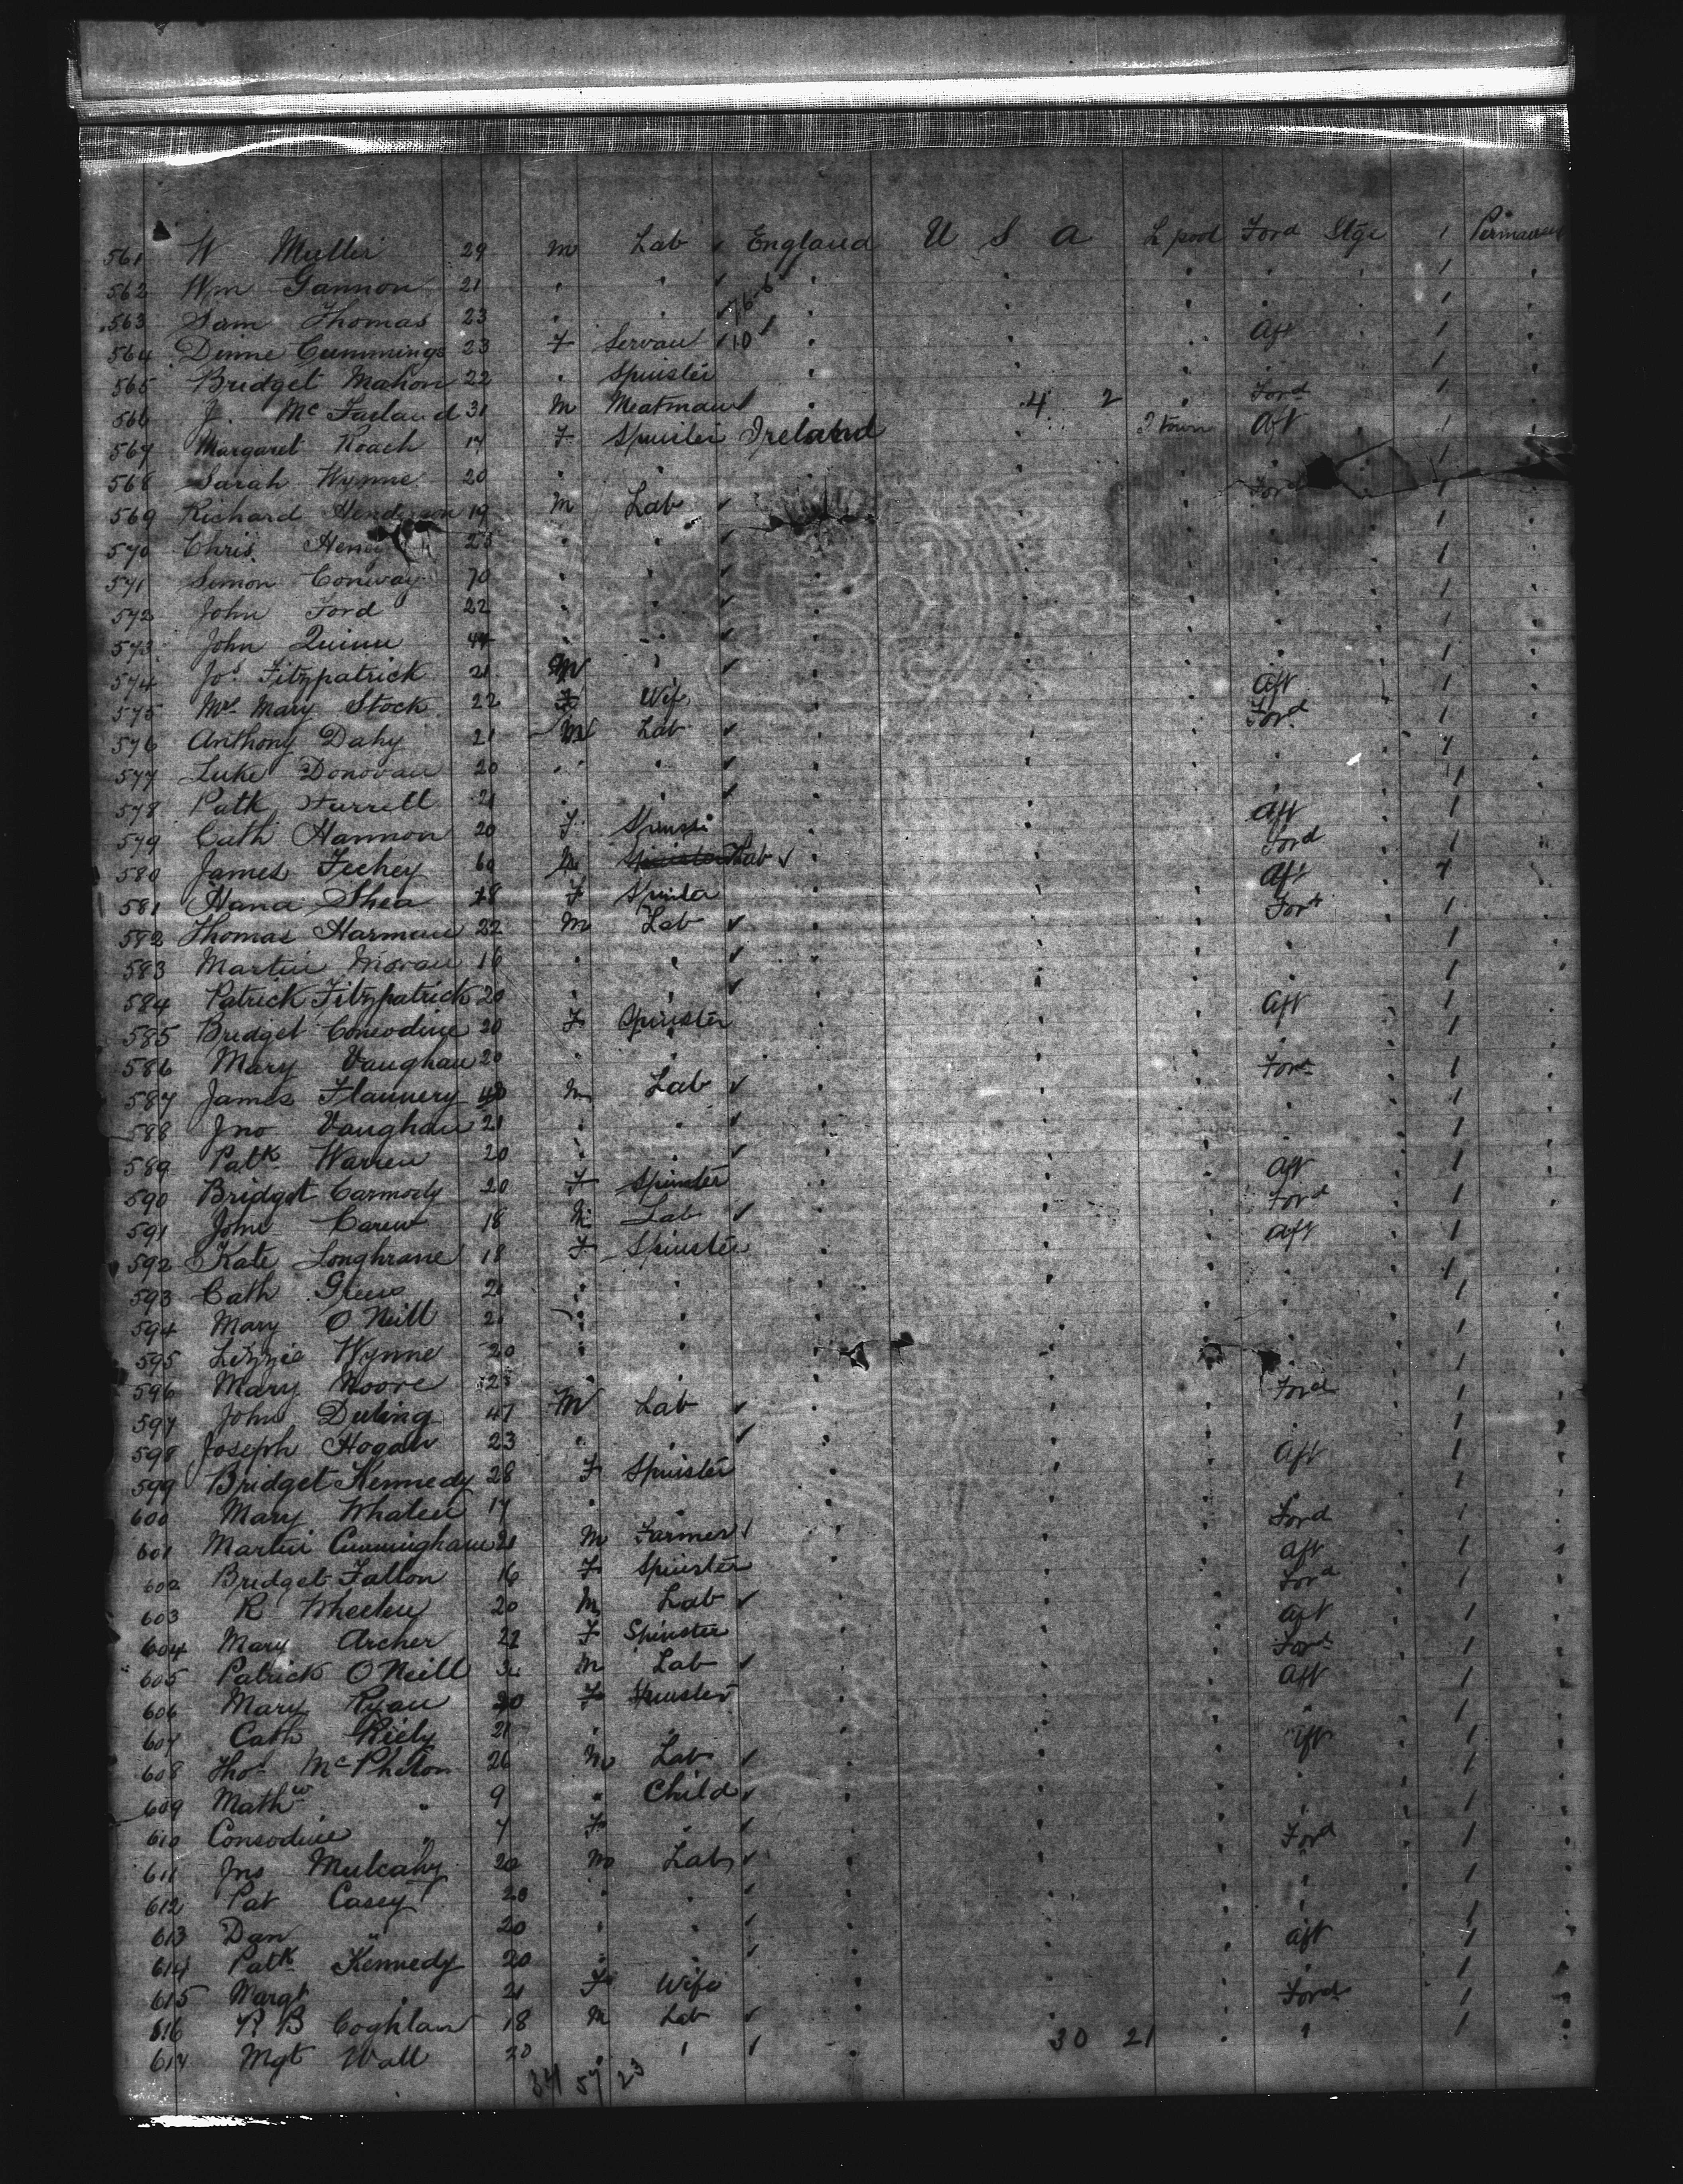 561 W Muller 29 m Lab England U S A L pool Ford Stge 1 Permanent
562 Wm Gannon 21 " " " " " 1 "
563 Sam Thomas 23 " " " " " 1 "
564 Dinne Cummings 23 F Servan 10 " " " Aft " 1
565 Bridget Mahon 22 " Spinster " " " " 1
566 J. McFarland 31 M Meatman " 4 2 " Ford 1
567 Margaret Roach 17 F Spinster Ireland Q town Aft 1
568 Sarah Wynne 20 " " 1
569 Richard Henderson 19 M Lab ✓ Ford 1
570 Chris Henry " " ✓ " " " 1
571 Simon Conway 70 " " ✓ " " " 1
572 John Ford 22 " " ✓ " " " 1
573 John Quinn 44 " " ✓ " " " 1
574 Jos Fitzpatrick 21 M " ✓ " " " 1
575 Mrs Mary Stock 22 F Wife " " " Aft 1
576 Anthony Dahy 21 M Lab ✓ " " " Ford 1
577 Luke Donovan 20 " " ✓ " " " 1
578 Patk Farrell 21 " " ✓ " " " 1
579 Cath Hannon 20 F Spinst " " " Aft 1
580 James Feehey 60 M Lab ✓ " " " Ford 1
581 Hana Shea 18 F Spinster " " " Aft 1
582 Thomas Harman 22 M Lab ✓ " " " Ford 1
583 Martin Moran 16 " " ✓ " " " 1
584 Patrick Fitzpatrick 20 " " ✓ " " " 1
585 Bridget Consodine 20 F Spinster " " " Aft 1
586 Mary Vaughan 20 " " " " " 1
587 James Flannery 40 M Lab ✓ " " " Ford 1
588 Jno Vaughan 21 " " ✓ " " " 1
589 Patk Warren 20 " " ✓ " " " 1
590 Bridget Carmody 20 F Spinster " " " Aft 1
591 John Carew 18 M Lab ✓ " " " Ford 1
592 Kate Longhrane 18 F Spinster " " " Aft 1
593 Cath 21 " " " " " 1
594 Mary O Neill " " " " " 1
595 Lizzie Wynne 20 " " " " 1
596 Mary Moore " " " " " 1
597 John Duling 47 M Lab ✓ " " " Ford 1
598 Joseph Hogan 23 " " ✓ " " " 1
599 Bridget Kennedy 28 F Spinster " " " Aft 1
600 Mary Whalen 17 " " " " 1
601 Martin Cunningham 21 M Farmer ✓ " " " Ford 1
602 Bridget Fallon 16 F Spinster " " " Aft 1
603 R Wheelen 20 M Lab ✓ " " " Ford 1
604 Mary Archer 22 F Spinster " " " Aft 1
605 Patrick O Neill M Lab ✓ " " " Ford 1
606 Mary Ryan 20 F Spinster " " " Aft 1
607 Cath Riely 21 " " " " " 1
608 Thos McPhilon 26 M Lab ✓ " " " Aft 1
609 Mathw " 9 " Child ✓ " " " 1
610 Consodine " 7 F " ✓ " " " 1
611 Jno Mulcahy 20 M Lab ✓ " " " Ford 1
612 Pat Casey 20 " " ✓ " " " 1
613 Dan " 20 " " ✓ " " " 1
614 Patk Kennedy 20 " " ✓ " " " Aft 1
615 Margt " 21 F Wife " " " 1
616 P B Coghlan 18 M Lab ✓ " " " Ford 1
617 Mgt Wall 20 " " ✓ " 30 21 " " 1
34 57 23